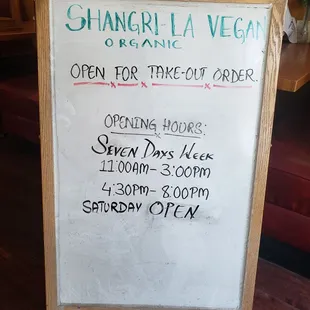 SHANGRI-LA VEGAN
ORGANIC
OPEN FOR TAKE-OUT ORDER.
OPENING HOURS:
SEVEN DAYS WEEK
11:00AM-3:00PM
4:30PM-8:00PM
SATURDAY OPEN